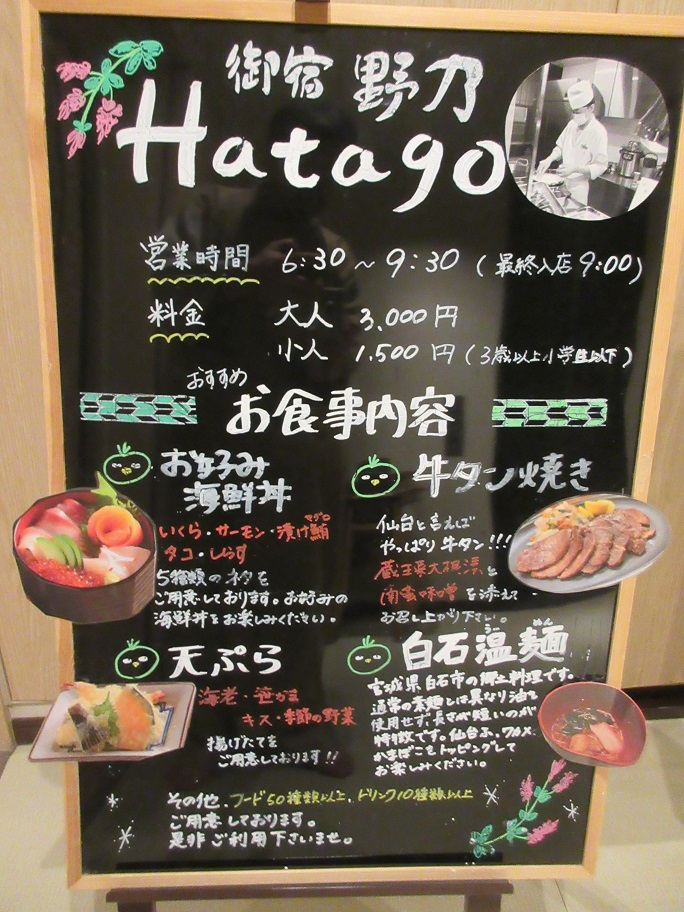 御宿 野乃
Hatago
営業時間 6:30～9:30 (最終入店 9:00)
料金 大人 3,000円
小人 1,500円 (3歳以上小学生以下)
おすすめ
お食事内容
お好み
海鮮丼
いくら・サーモン・漬け鮪
マグロ
タコ・しらす
5種類のネタを
ご用意しております。お好みの
海鮮丼をお楽しみください。
牛タン焼き
仙台と言えば
やっぱり牛タン!!!
蔵王菜大根漬と
南蛮味噌を添えて
お召し上がり下さい。
天ぷら
海老・笹かま
キス・季節の野菜
揚げたてを
ご用意しております!!
白石温麺
うー めん
宮城県白石市の郷土料理です。
通常の素麺とは異なり油を
使用せず長さが短いのが
特徴です。仙台ふ、ワカメ、
かまぼこをトッピングして
お楽しみください。
その他、フード50種類以上、ドリンク10種類以上
ご用意しております。
是非ご利用下さいませ。